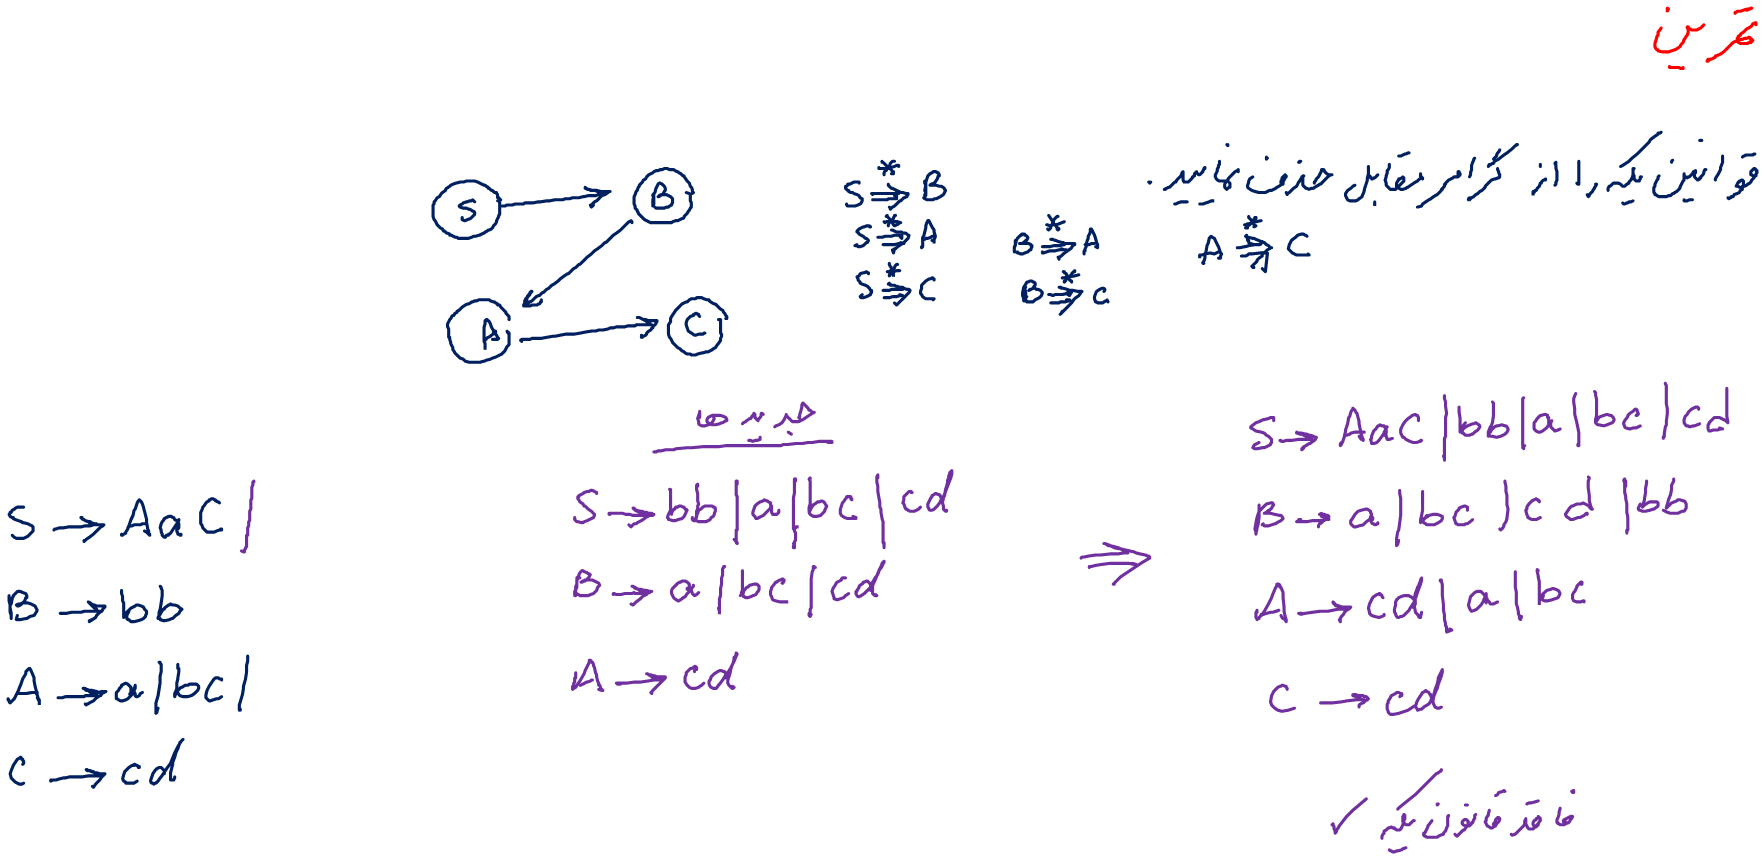 تمرین
قوانین یکه را از گرامر مقابل حذف نمایید.
S B
A C
S *⇒ B
S *⇒ A B *⇒ A A *⇒ C
S *⇒ C B *⇒ C
S → AaC |
B → bb
A → a | bc |
C → cd
جدیدها
S → bb | a | bc | cd
B → a | bc | cd
A → cd
⇒
S → AaC | bb | a | bc | cd
B → a | bc | cd | bb
A → cd | a | bc
C → cd
فاقد قانون یکه ✓